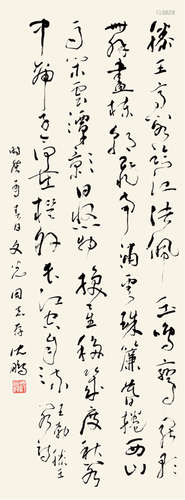 滕王高阁临江渚佩玉鸣鸾罢歌
舞画栋朝飞南浦云珠帘暮卷西山
雨闲云潭影日悠悠物换星移几度秋阁
中帝子今何在槛外长江空自流
王勃滕王
阁诗
时癸酉春日文光同志存沈鹏